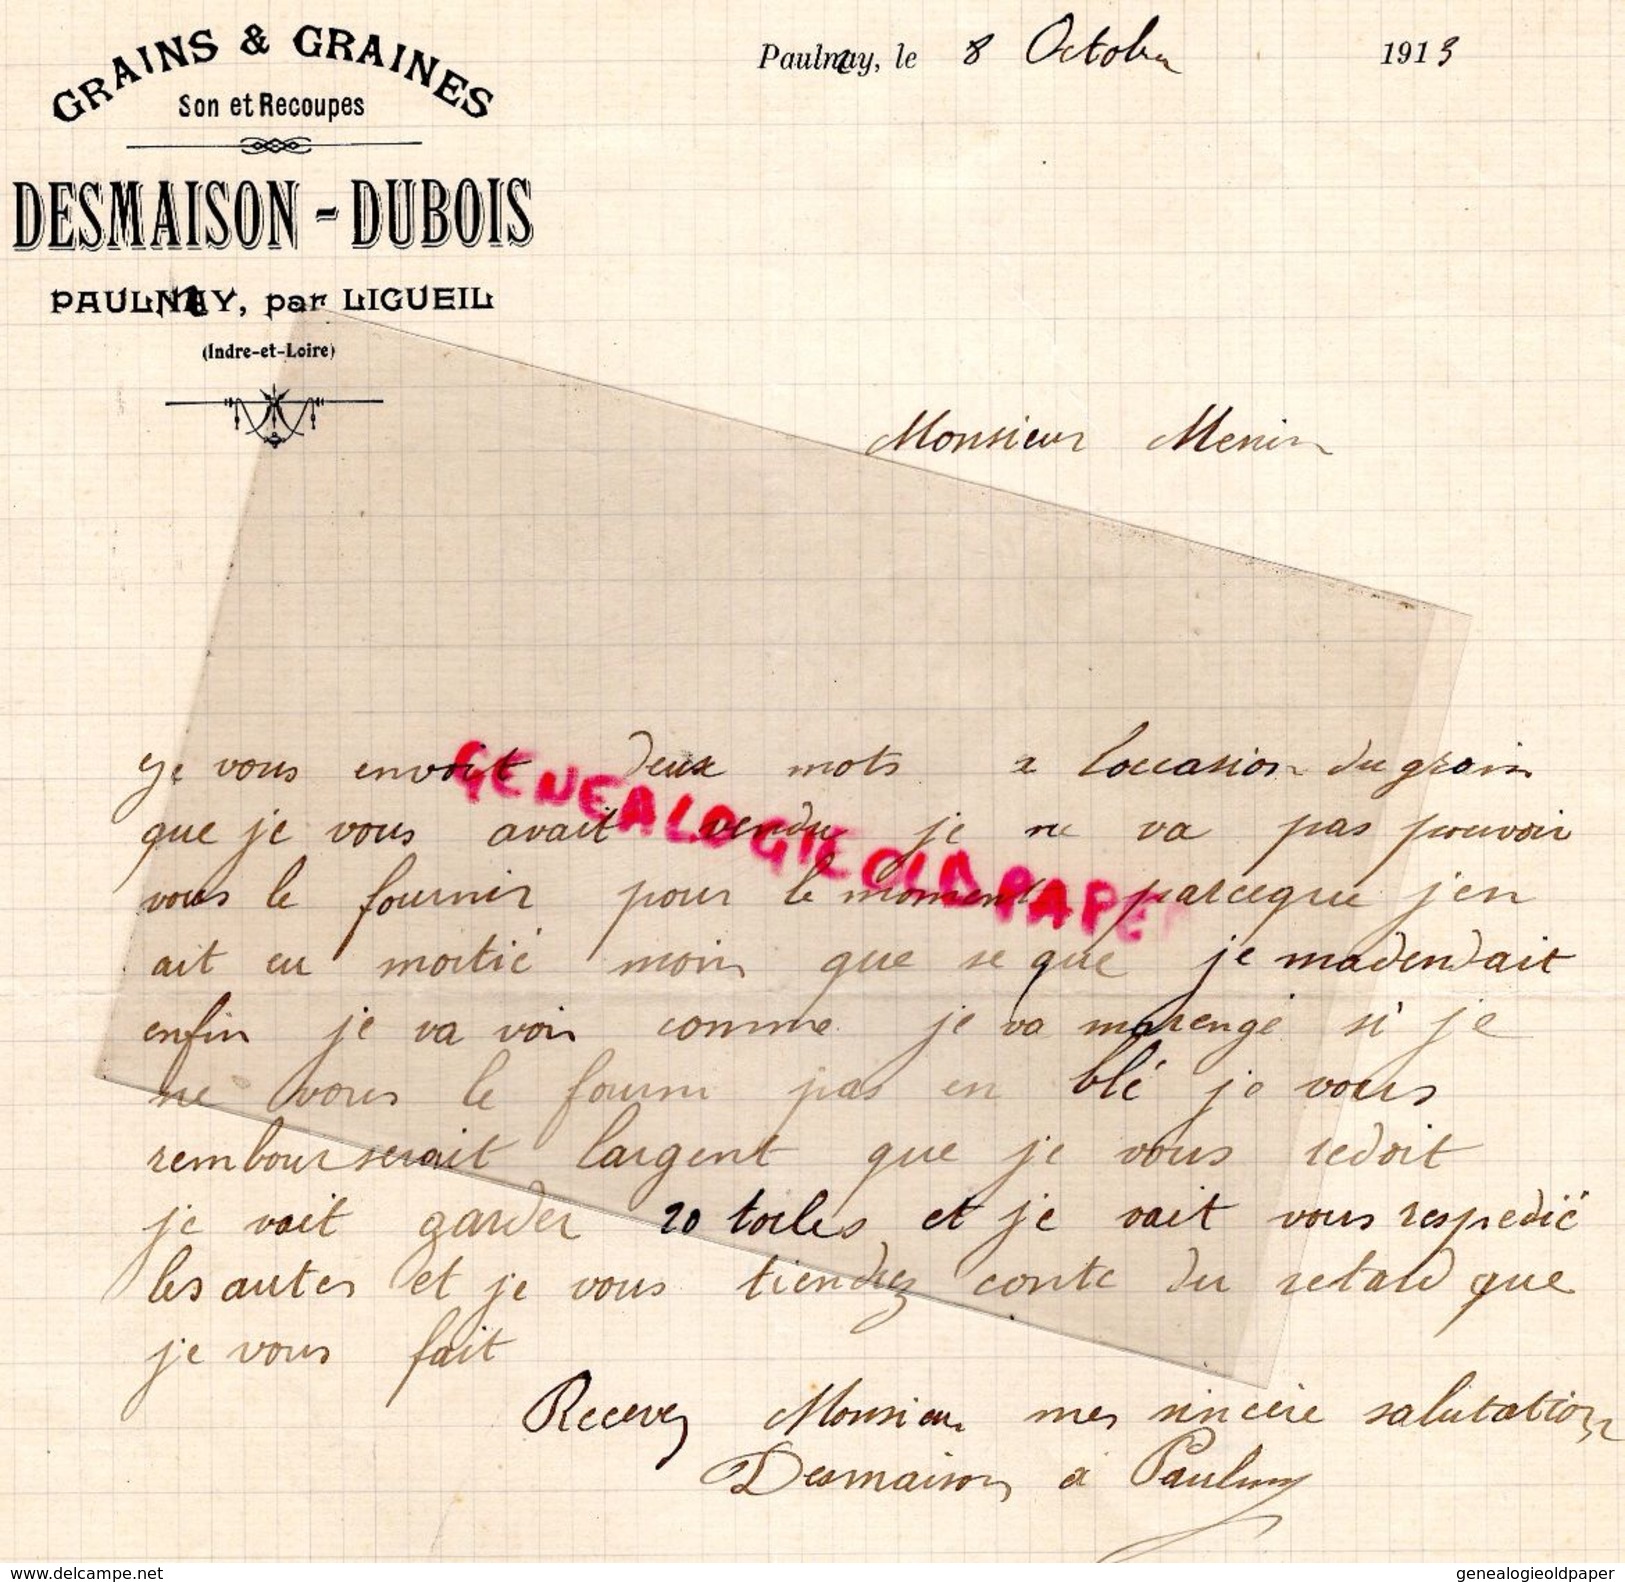 GRAINS & GRAINES
Son et Recoupes
DESMAISON - DUBOIS
PAULNAY, par LIGUEIL
(Indre-et-Loire)
Paulnay, le 8 Octobre 1913
Monsieur Menin
Je vous envoit deux mots a loccasion du grain
que je vous avait vendu je ne va pas pouvoir
vous le fournir pour le moment parceque jen
ait eu moitié moin que se que je madendait
enfin je va voir comme je va marengé si je
ne vous le fourni pas en blé je vous
rembourserait largent que je vous redoit
je vait garder 20 toiles et je vait vous respedié
les autes et je vous tiendrez conte du retard que
je vous fait
Recevez Monsieur mes sincère salutation
Desmaison a Paulnay
GENEALOGIE OLD PAPE
www.delcampe.net
genealogieoldpaper